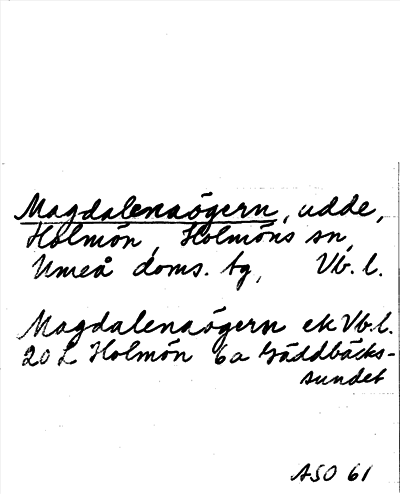 Magdalenaögern, udde,
Holmön, Holmöns sn,
Umeå doms. tg, Vb. l.
Magdalenaögern ek Vb.l.
20 L Holmön 6a Gäddbäcks-
sundet
ASO 61